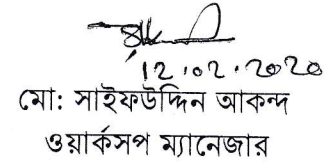 12.02.2020
মো: সাইফউদ্দিন আকন্দ
ওয়ার্কসপ ম্যানেজার